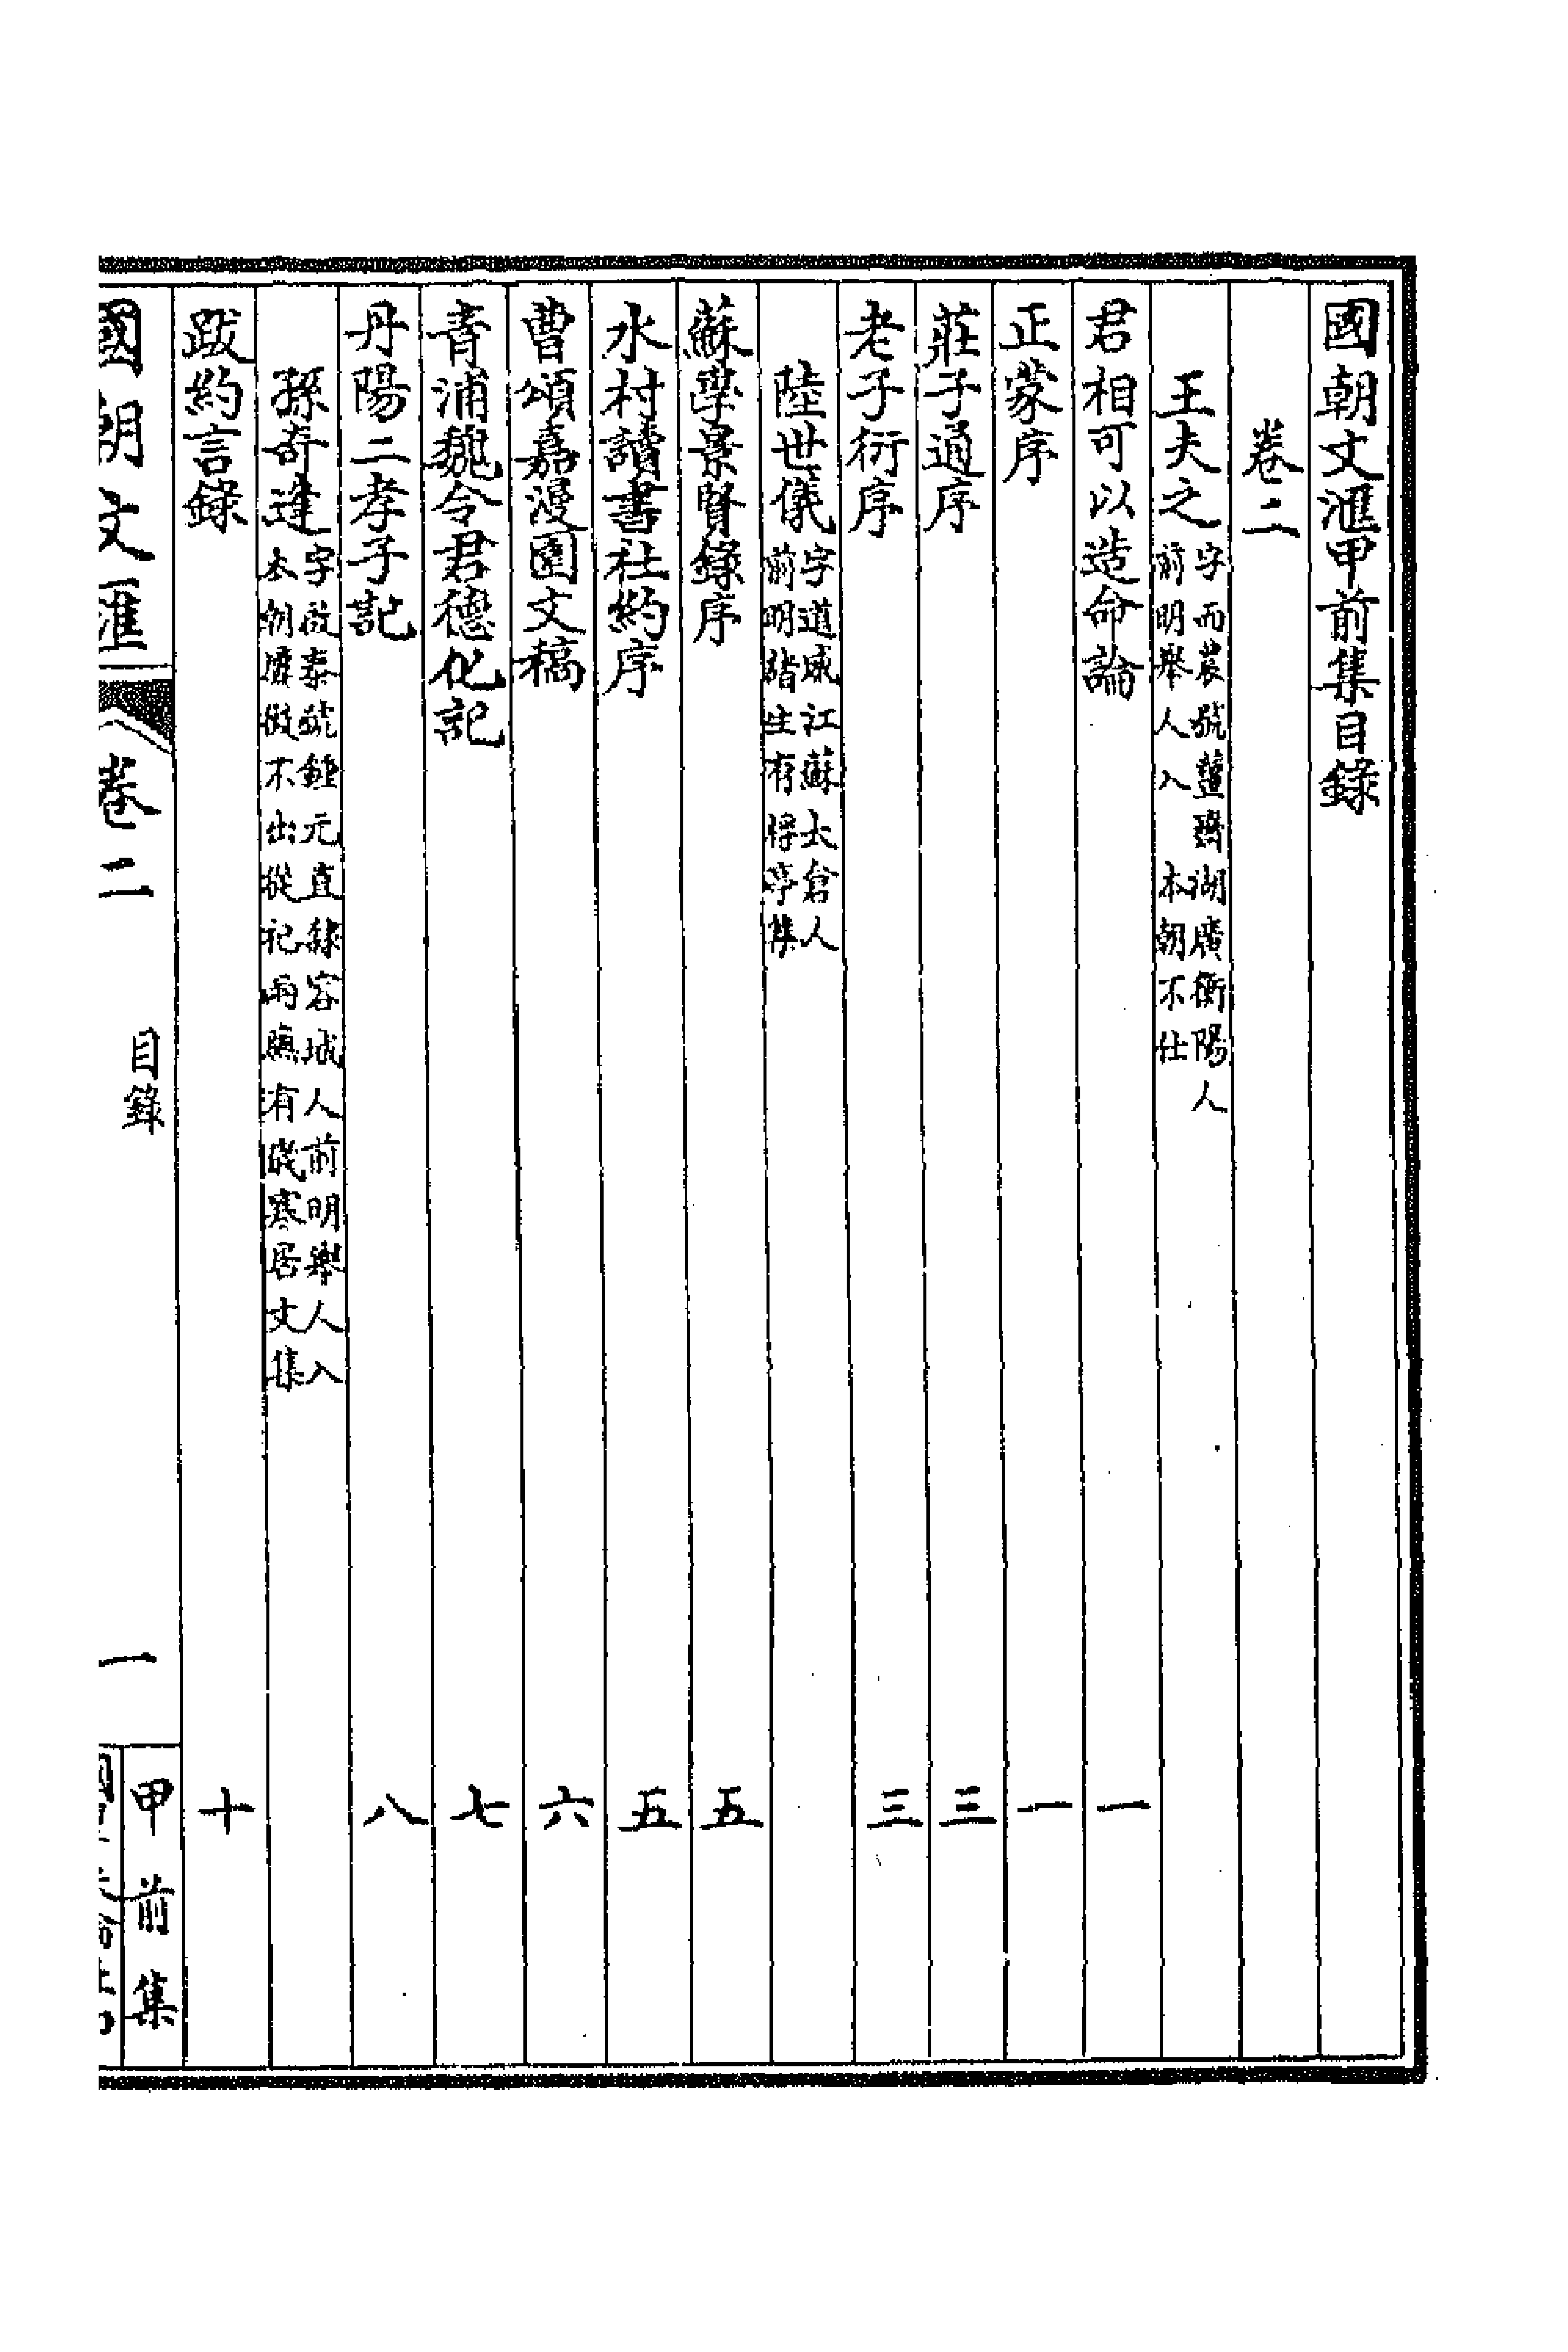 國朝文滙甲前集目錄
卷二
王夫之 字而農號薑齋湖廣衡陽人
前明舉人入 本朝不仕
君相可以造命論 一
正蒙序 一
莊子通序 三
老子衍序 三
陸世儀 字道威江蘇太倉人
前明諸生有桴亭集
蘇學景賢錄序 五
水村讀書社約序 五
曹頌嘉漫園文稿 六
青浦魏令君德化記 七
丹陽二孝子記 八
孫奇逢 字啟泰號鍾元直隸容城人前明舉人入
本朝屢徵不出從祀兩廡有歲寒居文集
跋約言錄 十
國朝文滙 卷二 目錄 一 甲前集